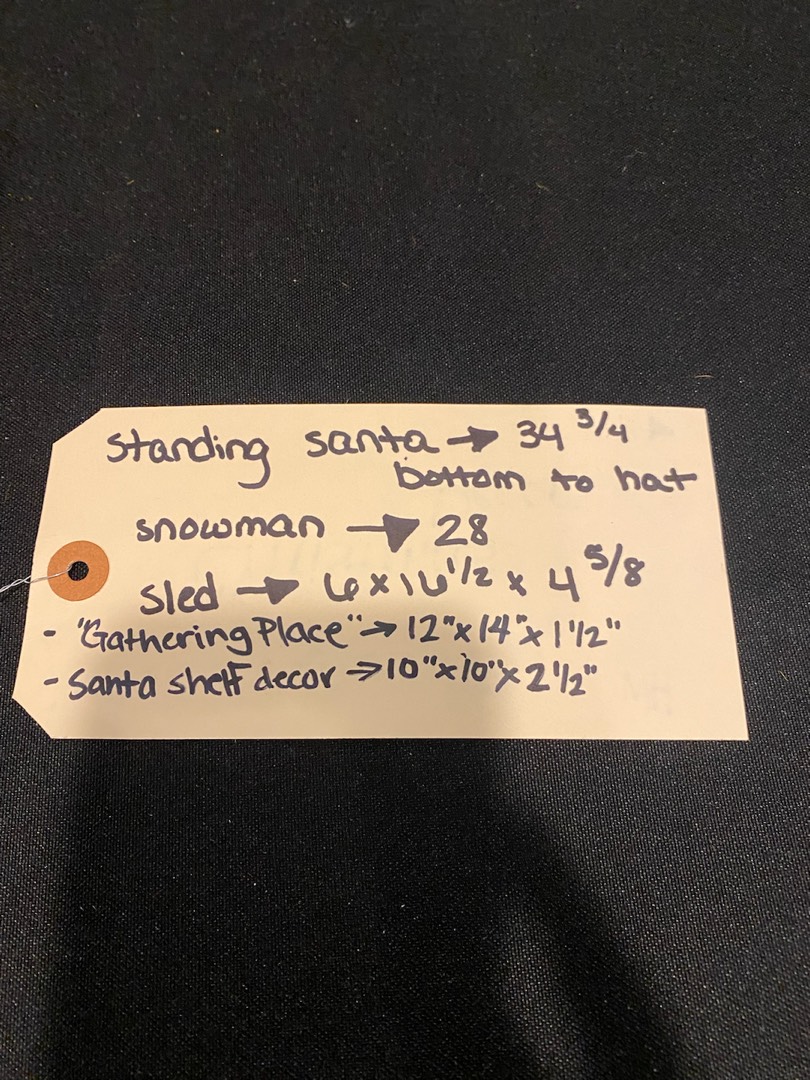 standing santa → 34 3/4
bottom to hat
snowman → 28
sled → 6 x 16 1/2 x 4 5/8
- "Gathering Place" → 12" x 14" x 1 1/2"
- Santa shelf decor → 10" x 10" x 2 1/2"